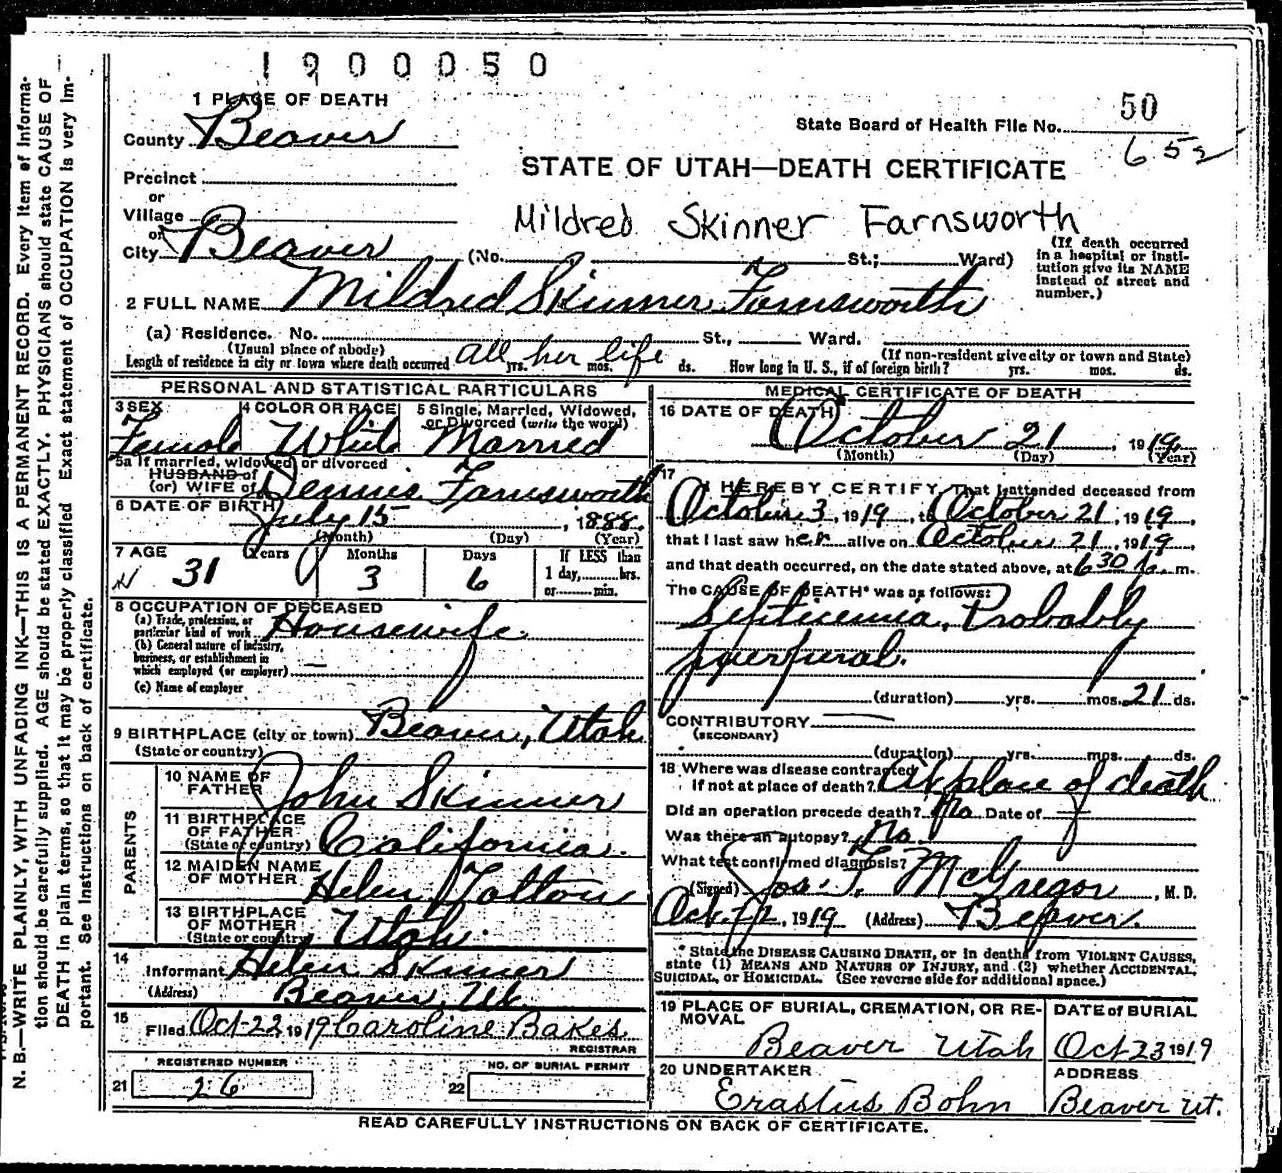 1900050
1 PLACE OF DEATH
County Beaver
State Board of Health File No. 50
652
STATE OF UTAH—DEATH CERTIFICATE
Precinct
or
Village
or
City Beaver
Mildred Skinner Farnsworth
(No. St.; Ward)
(If death occurred in a hospital or institution give its NAME instead of street and number.)
2 FULL NAME Mildred Skinner Farnsworth
(a) Residence. No. St., Ward.
(Usual place of abode) (If non-resident give city or town and State)
Length of residence in city or town where death occurred all her life yrs. mos. ds. How long in U. S., if of foreign birth? yrs. mos. ds.
PERSONAL AND STATISTICAL PARTICULARS
3 SEX 4 COLOR OR RACE 5 Single, Married, Widowed, or Divorced (write the word)
Female White Married
5a If married, widowed, or divorced
HUSBAND of
(or) WIFE of Dennis Farnsworth
6 DATE OF BIRTH July 15, 1888
(Month) (Day) (Year)
7 AGE Years Months Days If LESS than
31 3 6 1 day, hrs.
or min.
8 OCCUPATION OF DECEASED
(a) Trade, profession, or particular kind of work Housewife
(b) General nature of industry, business, or establishment in which employed (or employer) —
(c) Name of employer
9 BIRTHPLACE (city or town) Beaver, Utah
(State or country)
PARENTS
10 NAME OF FATHER John Skinner
11 BIRTHPLACE OF FATHER (State or country) California.
12 MAIDEN NAME OF MOTHER Helen Tolton
13 BIRTHPLACE OF MOTHER (State or country) Utah.
14
Informant Helen Skinner
(Address) Beaver, Ut
15
Filed Oct-22 1919 Caroline Bakes
REGISTRAR
REGISTERED NUMBER NO. OF BURIAL PERMIT
21 26 22
MEDICAL CERTIFICATE OF DEATH
16 DATE OF DEATH October 21, 1919
(Month) (Day) (Year)
17
I HEREBY CERTIFY, That I attended deceased from
October 3, 1919, to October 21, 1919,
that I last saw her alive on October 21, 1919,
and that death occurred, on the date stated above, at 6 30 m.
The CAUSE OF DEATH* was as follows:
Septicemia, Probably
puerperal.
(duration) yrs. mos. 21 ds.
CONTRIBUTORY —
(SECONDARY)
(duration) yrs. mos. ds.
18 Where was disease contracted
if not at place of death? At place of death
Did an operation precede death? No Date of —
Was there an autopsy? No
What test confirmed diagnosis?
(Signed) Jos. T. McGregor, M. D.
Oct. 22, 1919 (Address) Beaver.
* State the DISEASE CAUSING DEATH, or in deaths from VIOLENT CAUSES, state (1) MEANS AND NATURE OF INJURY, and (2) whether ACCIDENTAL, SUICIDAL, or HOMICIDAL. (See reverse side for additional space.)
19 PLACE OF BURIAL, CREMATION, OR REMOVAL DATE of BURIAL
Beaver Utah Oct 23 1919
20 UNDERTAKER ADDRESS
Erastus Bohn Beaver Ut.
READ CAREFULLY INSTRUCTIONS ON BACK OF CERTIFICATE.
N. B.—WRITE PLAINLY, WITH UNFADING INK—THIS IS A PERMANENT RECORD. Every item of information should be carefully supplied. AGE should be stated EXACTLY. PHYSICIANS should state CAUSE OF DEATH in plain terms, so that it may be properly classified Exact statement of OCCUPATION is very important. See Instructions on back of certificate.